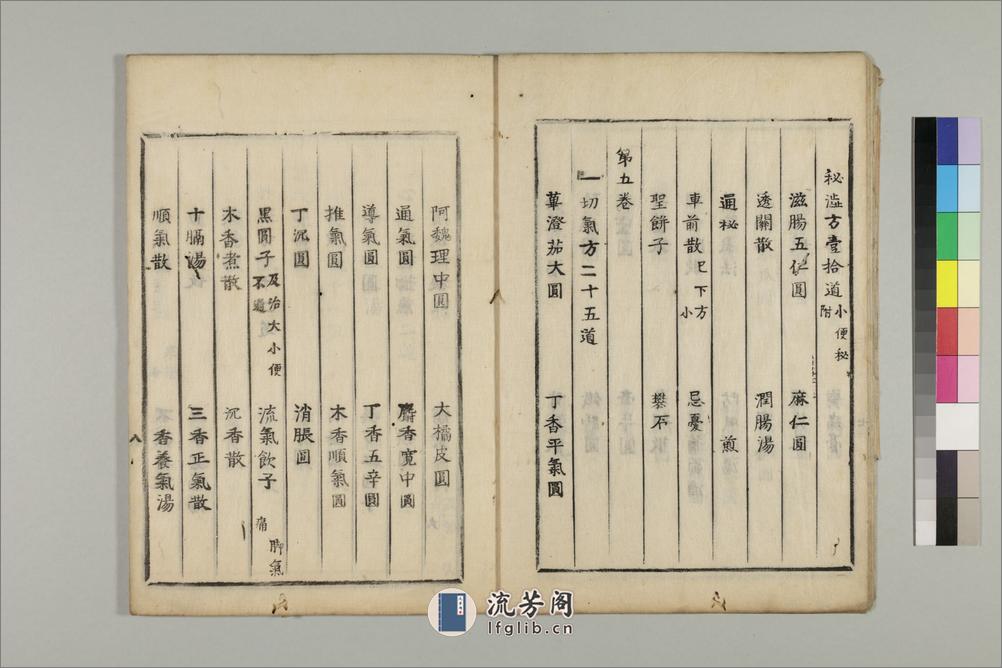 秘澁方壹拾道小便秘附
滋腸五仁圓 麻仁圓
透關散 潤腸湯
通秘 煎
車前散 巳下方小 忌憂
聖餅子 礬石
第五卷
一切氣方二十五道
蓽澄茄大圓 丁香平氣圓
阿魏理中圓 大橘皮圓
通氣圓 麝香寬中圓
導氣圓 丁香五辛圓
推氣圓 木香順氣圓
丁沉圓 消脹圓
黑圓子及治大小便不通 流氣飲子 脚氣痛
木香煮散 沉香散
十膈湯 三香正氣散
順氣散 木香養氣湯
八
流芳阁
lfglib.cn